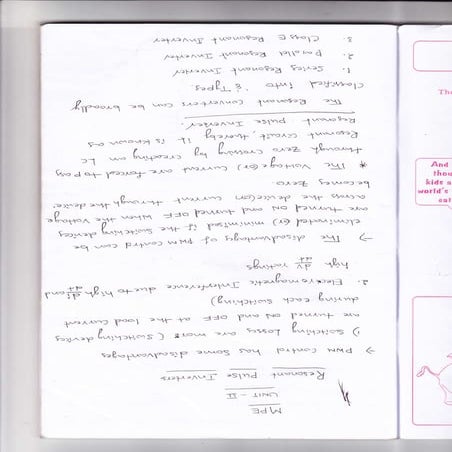 MPE
UNIT - II
Resonant Pulse Inverters
→ PWM control has some disadvantages
1) Switching Losses are more (Switching devices
are turned ON and OFF at the load current
during each switching)
2. Electromagnetic Interference due to high di/dt and
high dv/dt ratings
→ The disadvantages of PWM control can be
eliminated (or) minimised if the switching devices
are turned ON and turned OFF when the voltage
across the device (or) current through the device
becomes zero
* The Voltage (or) current are forced to pass
through zero crossing by creating an LC
Resonant circuit thereby it is known as
Resonant pulse Inverter.
The Resonant Converters can be broadly
classified into 8 Types.
1. Series Resonant Inverter
2. Parallel Resonant Inverter
3. Class E Resonant Inverter
The
And
thou
kids a
world's
eat